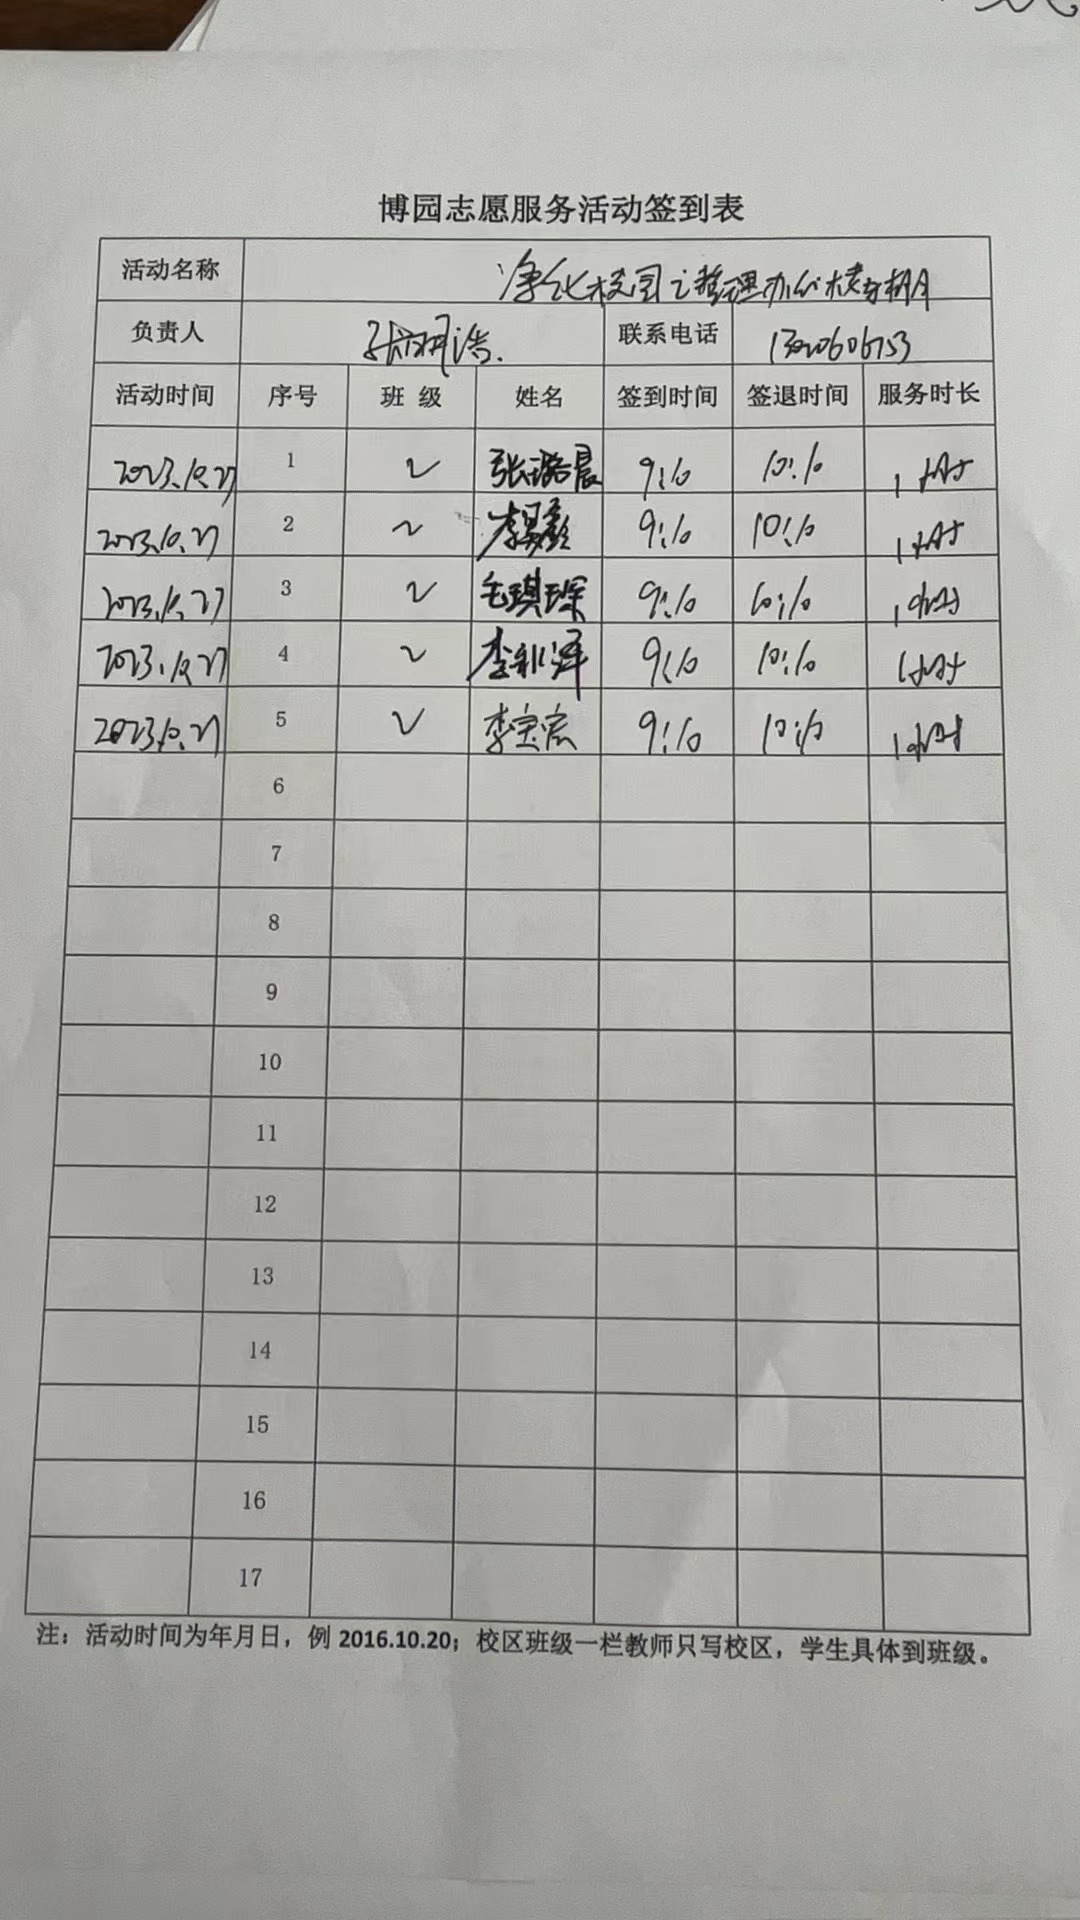 博园志愿服务活动签到表
活动名称 净化校园之整理办公楼车棚
负责人 张明浩. 联系电话
活动时间 序号 班 级 姓名 签到时间 签退时间 服务时长
2023.10.27 1 2 张璐晨 9:10 10:10 1小时
2023.10.27 2 2 9:10 10:10 1小时
2023.10.27 3 2 毛琪琛 9:10 10:10 1小时
2023.10.27 4 2 李泽 9:10 10:10 1小时
2023.10.27 5 2 李宝宏 9:10 10:10 1小时
6
7
8
9
10
11
12
13
14
15
16
17
注：活动时间为年月日，例 2016.10.20；校区班级一栏教师只写校区，学生具体到班级。